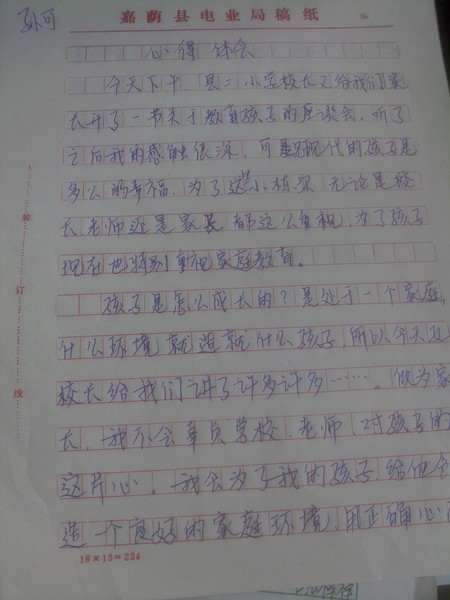 孙可
嘉荫县电业局稿纸
心得 体会
今天下午,县二小学校长又给我们家
长开了一节关于教育孩子的座谈会,听了
之后我的感触很深,可是现代的孩子是
多么的幸福,为了这些小栋梁 无论是校
长老师还是家长 都这么重视,为了孩子
现在也特别重视家庭教育。
孩子是怎么成长的?是处于一个家庭,
什么环境就造就什么孩子,所以今天
校长给我们讲了许多许多……。做为家
长,我不会辜负学校、老师 对孩子的
这片心。我会为了我的孩子 给他
造一个良好的家庭环境,用正确心
装
订
线
18×13=234